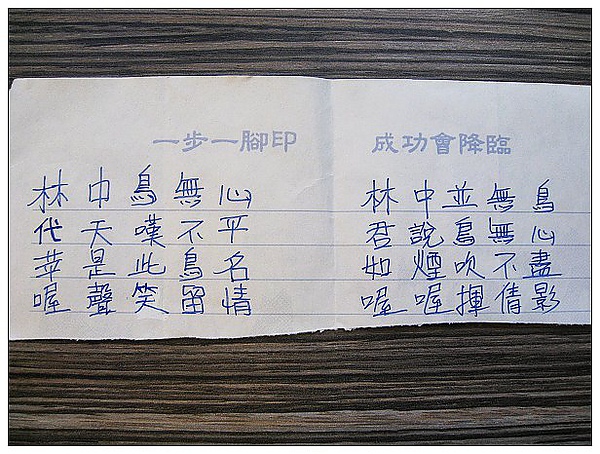 一步一腳印 成功會降臨
林中鳥無心
代天嘆不平
苹是此鳥名
喔聲笑留情
林中並無鳥
君說鳥無心
如煙吹不盡
喔喔揮倩影